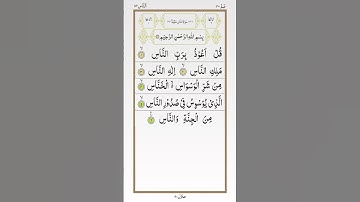 بِسْمِ اللّٰهِ الرَّحْمٰنِ الرَّحِيْمِ
قُلْ اَعُوْذُ بِرَبِّ النَّاسِ ۱
مَلِكِ النَّاسِ ۲ اِلٰهِ النَّاسِ ۳
مِنْ شَرِّ الْوَسْوَاسِ ۙ الْخَنَّاسِ ۴
الَّذِيْ يُوَسْوِسُ فِيْ صُدُوْرِ النَّاسِ ۵
مِنَ الْجِنَّةِ وَالنَّاسِ ۶